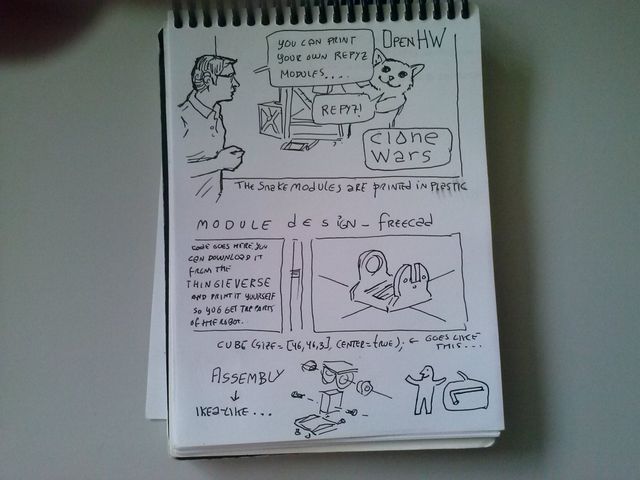 OPENHW
YOU CAN PRINT
YOUR OWN REPYZ
MODULES....
REPYZ!
clone
wars
THE SNAKE MODULES ARE PRINTED IN PLASTIC
MODULE design - freecad
CODE GOES HERE YOU
CAN DOWNLOAD IT
FROM THE
THINGIEVERSE
AND PRINT IT YOURSELF
SO YOU GET THE PARTS
OF THE ROBOT.
CUBE (SIZE = [46,46,3], CENTER=TRUE); ← GOES LIKE
THIS...
ASSEMBLY
↓
IKEA-LIKE...